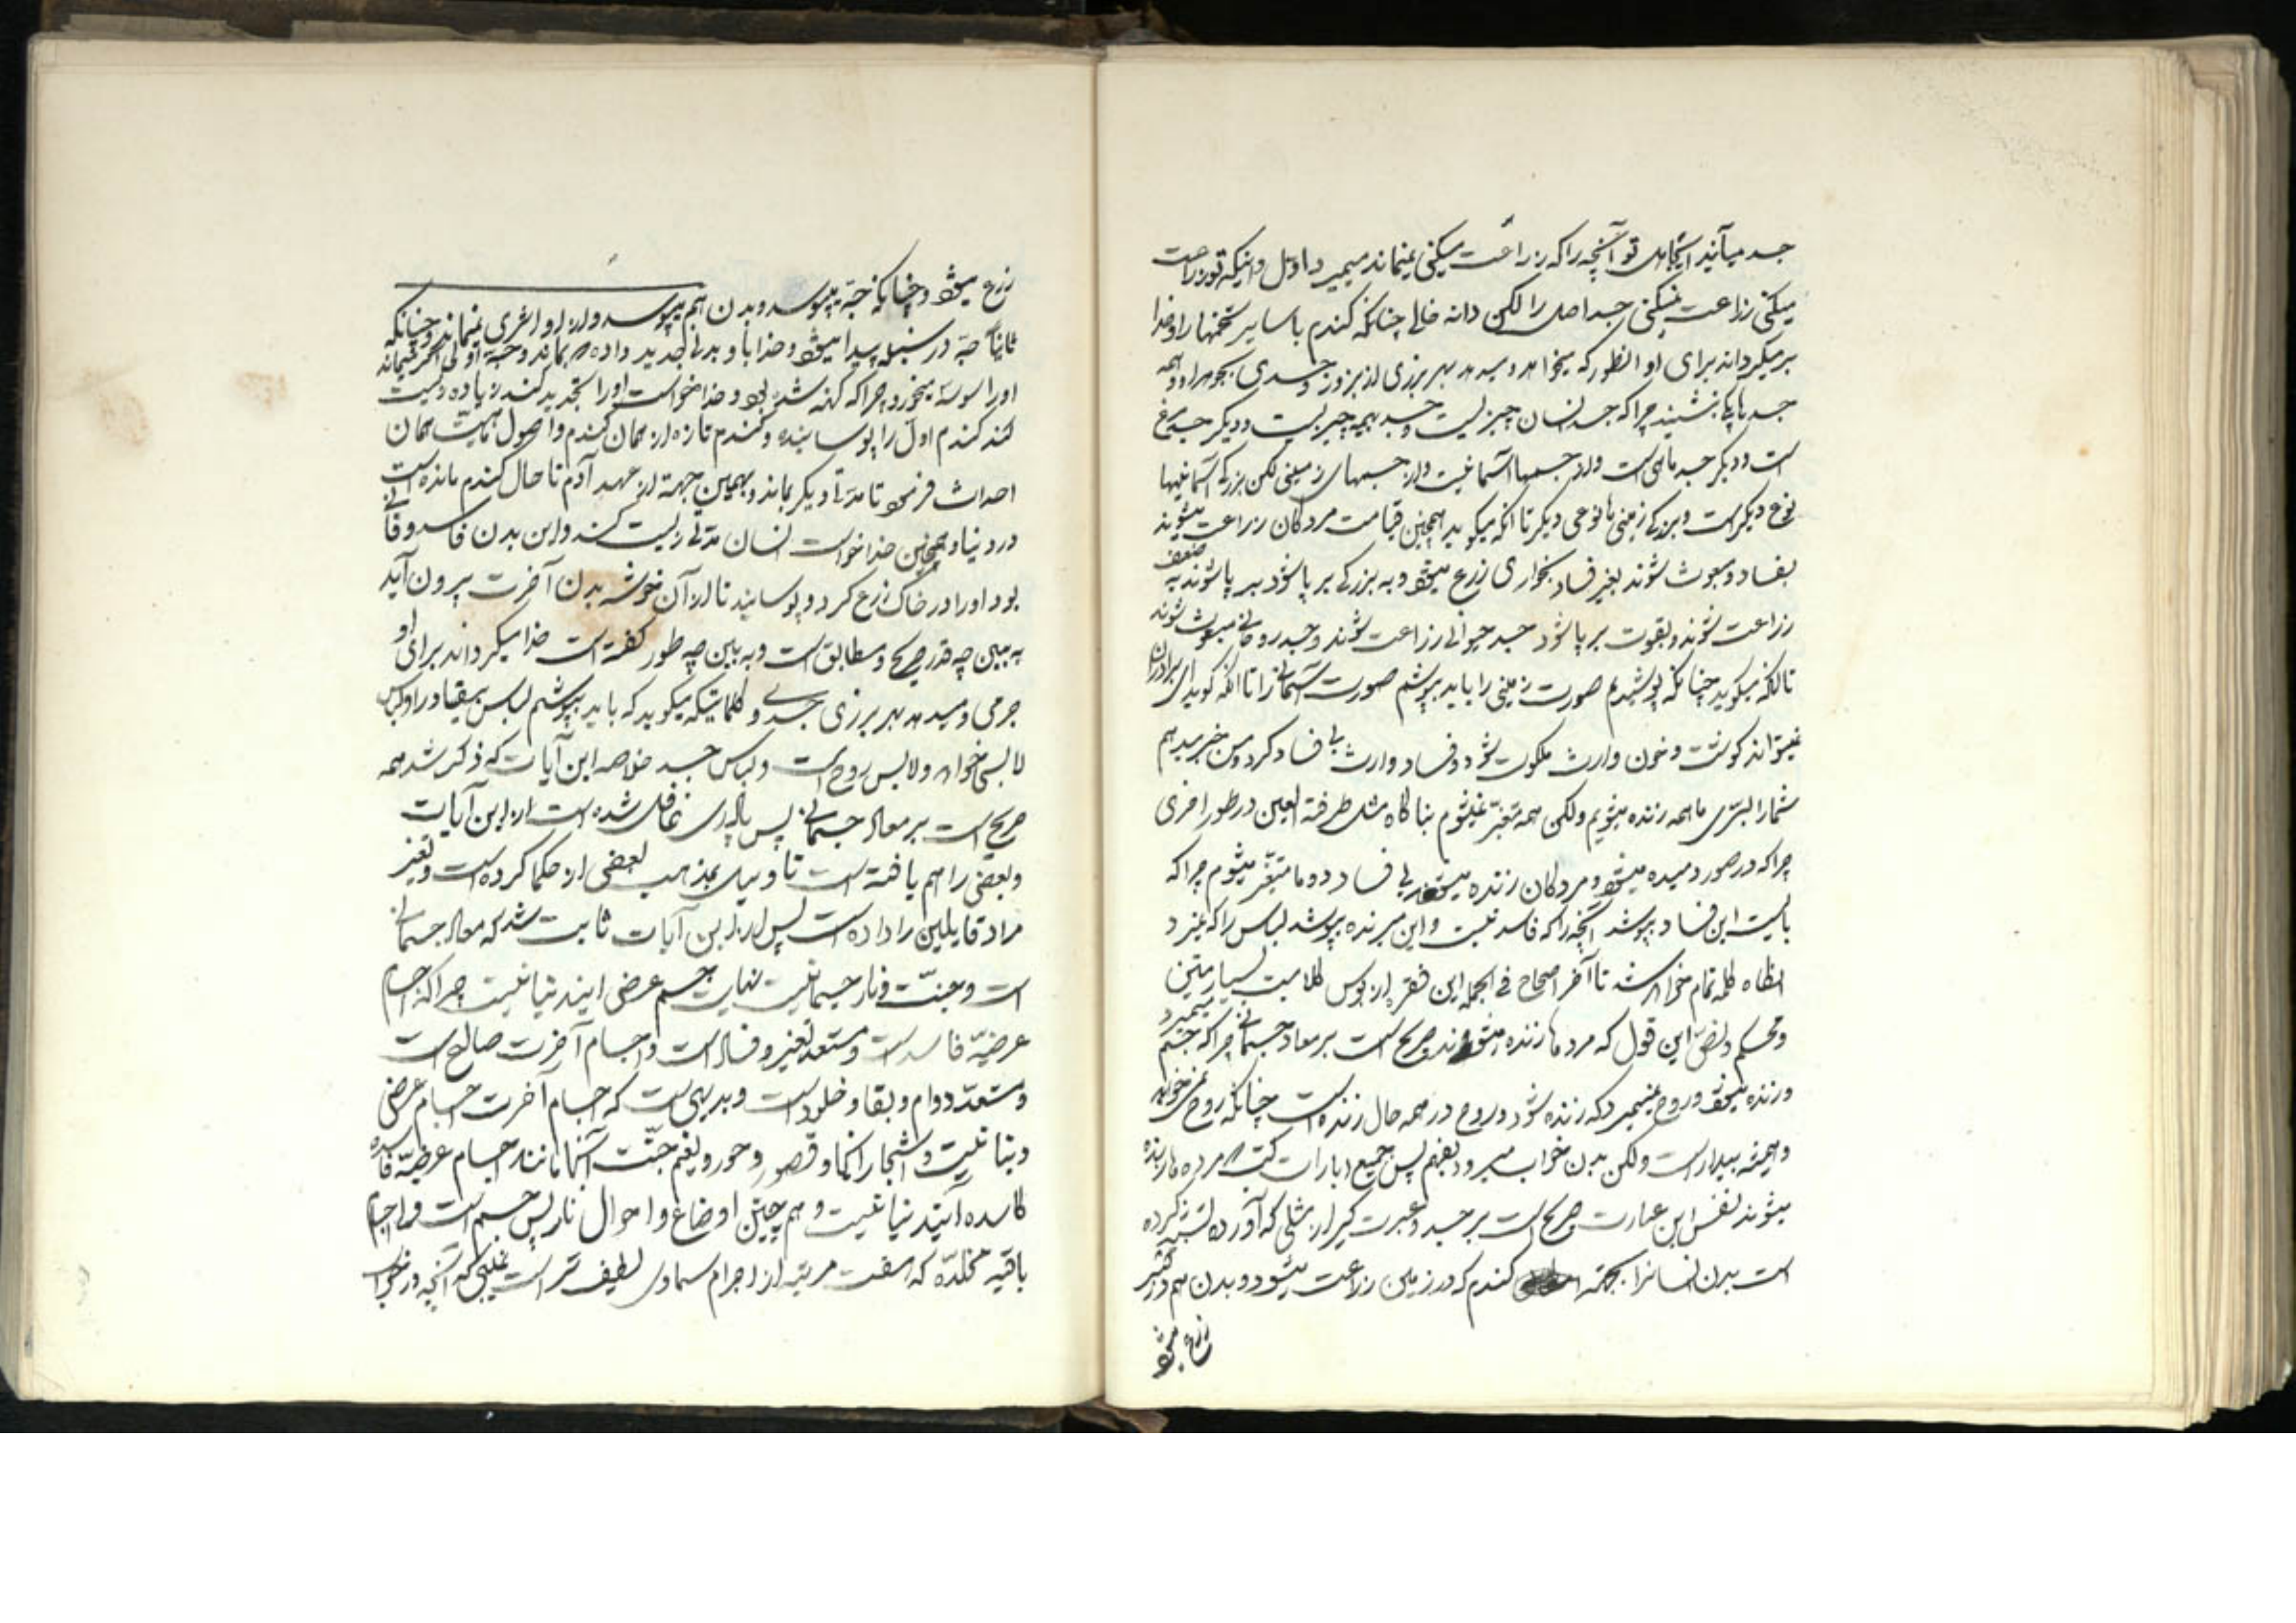 جسد میآیند ای جاهل تو آنچه را که زراعت میکنی نمیماند میمیرد اول و اینکه تو زراعت
میکنی زراعت نمیکنی جسد اصل را لکن دانه خالی چنانکه گندم یا سایر تخمها را و خدا
برمیگرداند برای او انطور که میخواهد و میدهد بهر بزری از بزور جسدی بجوهر او و همه
جسد یکنند چرا که جسد انسان چیزیست و جسد بهیمه چیزیست و دیگر جسد مرغ
است و دیگر جسد ماهی است و از جسمها آسمانیست و از جسمهای زمینی لکن بزرگی آسمانیها
نوع دیگر است و بزرگی زمینی ها نوعی دیگر تا آنکه میگوید همچنین قیامت مردگان زراعت میشوند
بفساد و مبعوث شوند بغیر فساد بخواری زرع میشود و به بزرگی بر پا شود بر پا شوند به ضعف
زراعت شوند و بقوت بر پا شود جسد حیوانی زراعت شوند و جسد روحانی مبعوث شوند
تا آنکه میگوید چنانکه پوشیدیم صورت زمینی را باید بپوشیم صورت آسمانی را تا آنکه گوید ای برادران
نمیتواند گوشت و خون وارث ملکوت شود و فساد وارث بی فساد گردد من خبر میدهم
شما را بسرّی ما همه زنده میشویم ولکن همه متغیّر نمیشویم بناگاه مثل طرفة العین در طور اخری
چرا که در صور دمیده میشود و مردگان زنده میشوند بی فساد و ما متغیّر میشویم چرا که
بایست این فساد بپوشد آنچه را که فاسد نیست و این میرنده بپوشد لباس را که نمیرد
انگاه کلمه تمام خواهد شد تا آخر اصحاح فی الجمله این فقره از پولس کلامیست بسیار متین
و محکم و نصّ این قول که مرده ها زنده میشوند صریح است بر معاد جسمانی چرا که جسم میمیرد
و زنده میشود و روح نمیمیرد که زنده شود و روح در همه حال زنده است چنانکه روح نمیخوابد
و همیشه بیدار است ولکن بدن خواب میرود بفهم پس جمیع عبارات کتب مرده ها زنده
میشوند نفس این عبارت صریح است بر جسد و عبرت گیر از مثلی که آورده تشبیه کرده
است بدن انسانرا بحبّه گندم که در زمین زراعت میشود و بدن هم در قبر
زرع میشود
زرع میشود و چنانکه حبّه میپوسد و بدن هم میپوسد و از او اثری نمیماند و چنانکه
ثانیاً حبّه در سنبله پیدا میشود و خدا باو بدنی جدید داده بماند و حبّه اولی اگر نمیماند
اورا سوسه میخورد چرا که کهنه شده بود و خدا خواست اورا تجدید کند زیاده زیست
کند گندم اول را پوسانیده و گندم تازه از همان گندم و اصول ماهیت همان
احداث فرمود تا مدّتی دیگر بماند و بهمین جهة از عهد آدم تا حال گندم مانده است
در دنیا و همچنین خدا خواست انسان مدتی زیست کند و این بدن فاسد و فانی
بود اورا در خاک زرع کرد و پوسانید تا از آن خوشه بدن آخرت بیرون آید
به بین چه قدر صریح و مطابق است و به بین چه طور گفته است خدا میگرداند برای او
جرمی و میدهد بهر بزری جسدی و کلماتیکه میگوید که باید بپوشیم لباس بیفساد را و لباس
لابسی خواهد و لابس روح است و لباس جسد خلاصه این آیات که ذکر شد همه
صریح است بر معاد جسمانی پس پادری غافل شده است از این آیات
و بعضی را هم یافته است تاویل بمذهب بعضی از حکما کرده است و تغییر
مراد قایلین را داده است پس از این آیات ثابت شد که معاد جسمانی
است و جنّت و نار جسمانیست نهایت جسم عرضی ایندنیا نیست چرا که اجسام
عرضیّه فاسد است و مستعد تغییر و فساد است و اجسام آخرت صالح است
و مستعدّ دوام و بقا و خلود است و بدیهی است که اجسام آخرت اجسام عرضی
دنیا نیست و اشجار آنها و قصور و حور و نعیم جنّت آنها مانند اجسام عرضیّه فاسده
کاسده ایندنیا نیست و هم چنین اوضاع و احوال نار پس جسم است و اجسام
باقیه مخلّده که هفت مرتبه از اجرام سماوی لطیف تر است نمیبینی که آنچه در خواب